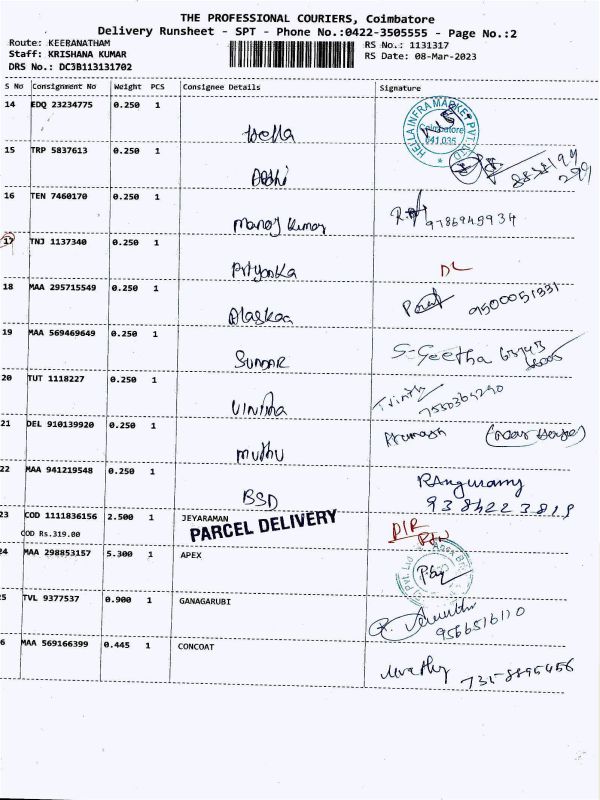 THE PROFESSIONAL COURIERS, Coimbatore
Delivery Runsheet - SPT - Phone No.:0422-3505555 - Page No.:2
Route: KEERANATHAM
RS No.: 1131317
Staff: KRISHANA KUMAR
RS Date: 08-Mar-2023
DRS No.: DC3B113131702
S No Consignment No Weight PCS Consignee Details Signature
14 EDQ 23234775 0.250 1
Hella
HELLA INFRA MARKET PVT. LTD
Coimbatore
641 035
15 TRP 5837613 0.250 1
16 TEN 7460170 0.250 1
Manoj Kumar
9786945934
17 TNJ 1137340 0.250 1
Priyanka
DL
18 MAA 295715549 0.250 1
Alaskaa
9500051331
19 MAA 569469649 0.250 1
SUNDAR
S-Geetha
20 TUT 1118227 0.250 1
Vinitha
7550364240
21 DEL 910139920 0.250 1
Muthu
22 MAA 941219548 0.250 1
BSD
23 COD 1111836156 2.500 1 JEYARAMAN
COD Rs.319.00
PARCEL DELIVERY
24 MAA 298853157 5.300 1 APEX
5 TVL 9377537 0.900 1 GANAGARUBI
9566516110
6 MAA 569166399 0.445 1 CONCOAT